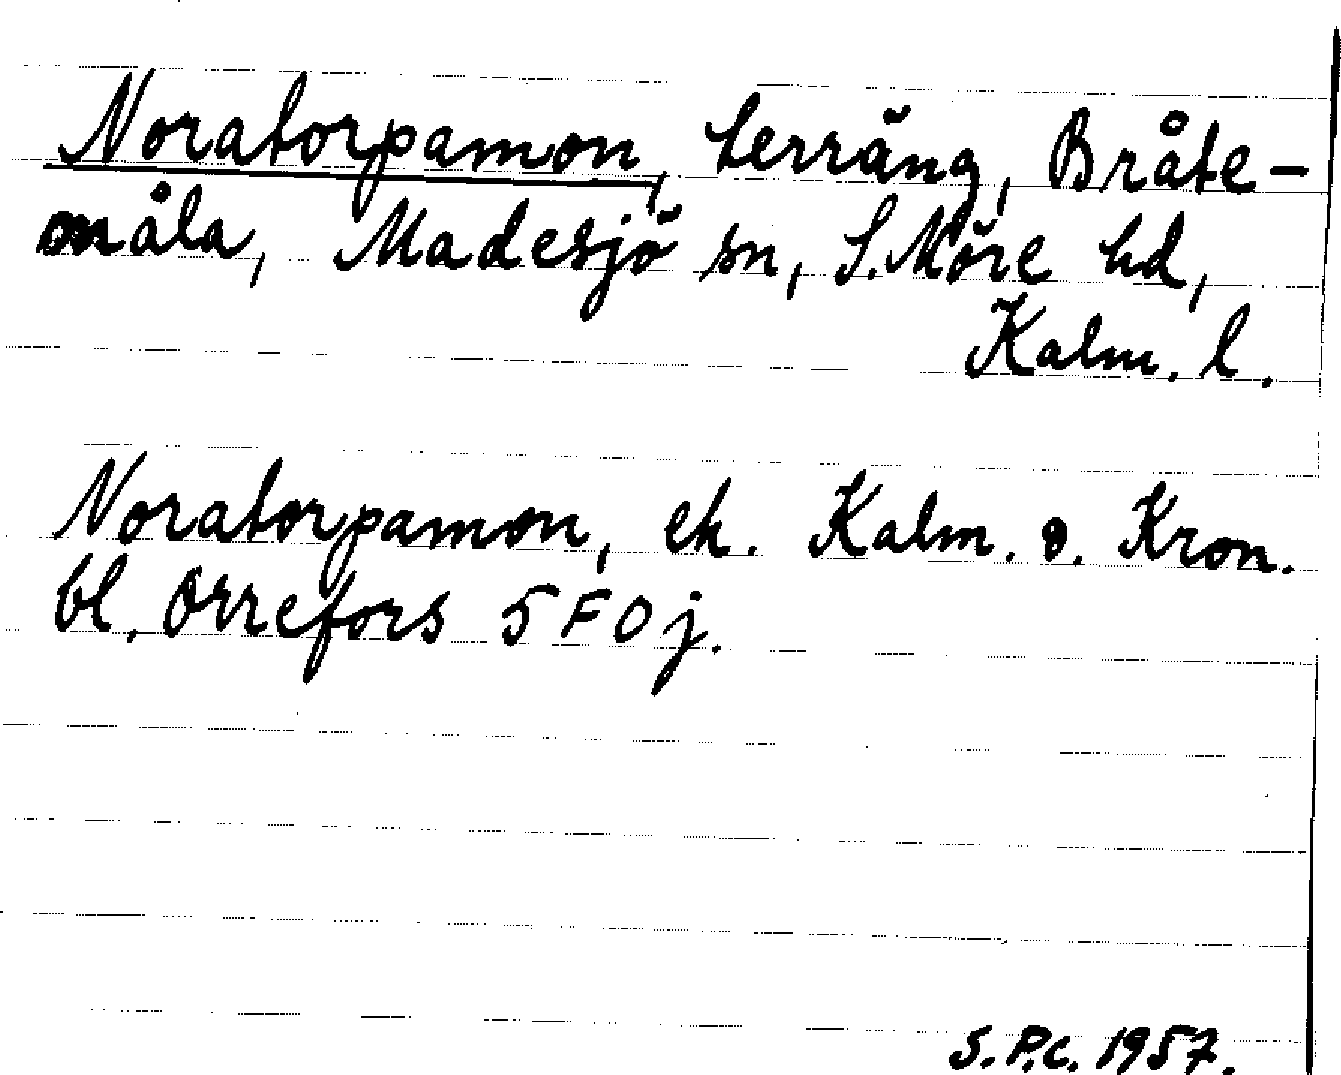 Noratorpamon, terräng, Bråte-
måla, Madesjö sn, S. Möre hd,
Kalm. l.
Noratorpamon, ek. Kalm. o. Kron.
bl. Orrefors 5 F 0 j.
S.P.C. 1957.